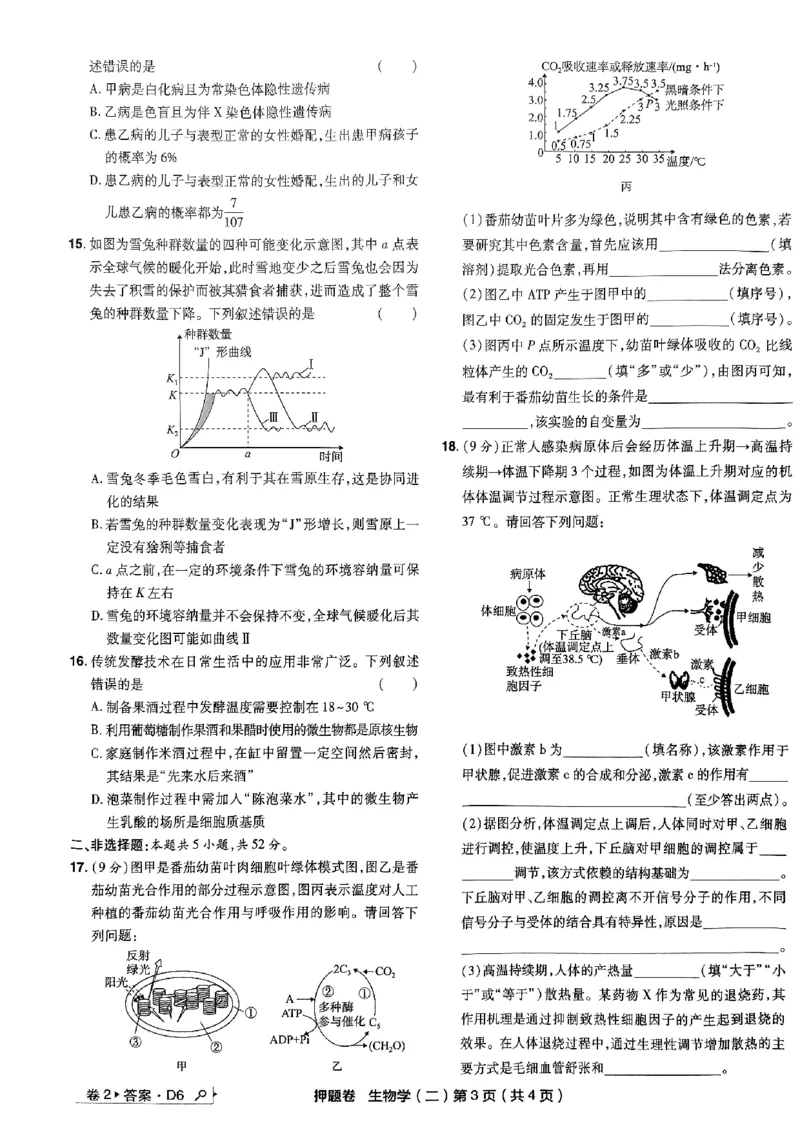 述错误的是 (　　)
A. 甲病是白化病且为常染色体隐性遗传病
B. 乙病是色盲且为伴 X 染色体隐性遗传病
C. 患乙病的儿子与表型正常的女性婚配,生出患甲病孩子
的概率为 6%
D. 患乙病的儿子与表型正常的女性婚配,生出的儿子和女
儿患乙病的概率都为 7/107
15. 如图为雪兔种群数量的四种可能变化示意图,其中 a 点表
示全球气候的暖化开始,此时雪地变少之后雪兔也会因为
失去了积雪的保护而被其猎食者捕获,进而造成了整个雪
兔的种群数量下降。下列叙述错误的是 (　　)
种群数量
“J”形曲线
Ⅰ
K₁
K
Ⅲ
Ⅱ
K₂
O
a
时间
A. 雪兔冬季毛色雪白,有利于其在雪原生存,这是协同进
化的结果
B. 若雪兔的种群数量变化表现为“J”形增长,则雪原上一
定没有猞猁等捕食者
C. a 点之前,在一定的环境条件下雪兔的环境容纳量可保
持在 K 左右
D. 雪兔的环境容纳量并不会保持不变,全球气候暖化后其
数量变化图可能如曲线Ⅱ
16. 传统发酵技术在日常生活中的应用非常广泛。下列叙述
错误的是 (　　)
A. 制备果酒过程中发酵温度需要控制在 18~30 ℃
B. 利用葡萄糖制作果酒和果醋时使用的微生物都是原核生物
C. 家庭制作米酒过程中,在缸中留置一定空间然后密封,
其结果是“先来水后来酒”
D. 泡菜制作过程中需加入“陈泡菜水”,其中的微生物产
生乳酸的场所是细胞质基质
二、非选择题:本题共 5 小题,共 52 分。
17. (9 分)图甲是番茄幼苗叶肉细胞叶绿体模式图,图乙是番
茄幼苗光合作用的部分过程示意图,图丙表示温度对人工
种植的番茄幼苗光合作用与呼吸作用的影响。请回答下
列问题:
反射
绿光
阳光
①
②
③
甲
2C₃
CO₂
A
ATP
②
①
多种酶
参与催化
C₅
ADP+Pi
(CH₂O)
乙
CO₂吸收速率或释放速率/(mg·h⁻¹)
4.0
3.0
2.0
1.0
0
1
1.75
2.5
3.25
3.75
3.5
3.5
黑暗条件下
3
P
3
光照条件下
2.25
1.5
1
0.75
0.5
5 10 15 20 25 30 35 温度/℃
丙
(1)番茄幼苗叶片多为绿色,说明其中含有绿色的色素,若
要研究其中色素含量,首先应该用____________(填
溶剂)提取光合色素,再用____________法分离色素。
(2)图乙中 ATP 产生于图甲中的_________(填序号),
图乙中 CO₂ 的固定发生于图甲的_________(填序号)。
(3)图丙中 P 点所示温度下,幼苗叶绿体吸收的 CO₂ 比线
粒体产生的 CO₂______(填“多”或“少”),由图丙可知,
最有利于番茄幼苗生长的条件是________________
________,该实验的自变量为________________。
18. (9 分)正常人感染病原体后会经历体温上升期→高温持
续期→体温下降期 3 个过程,如图为体温上升期对应的机
体体温调节过程示意图。正常生理状态下,体温调定点为
37 ℃。请回答下列问题:
病原体
体细胞
致热性细
胞因子
下丘脑
(体温调定点上
调至38.5 ℃)
激素a
垂体
激素b
甲状腺
激素
c
减少散热
受体
甲细胞
乙细胞
受体
(1)图中激素 b 为_________(填名称),该激素作用于
甲状腺,促进激素 c 的合成和分泌,激素 c 的作用有_____
________________________(至少答出两点)。
(2)据图分析,体温调定点上调后,人体同时对甲、乙细胞
进行调控,使温度上升,下丘脑对甲细胞的调控属于___
______调节,该方式依赖的结构基础为__________。
下丘脑对甲、乙细胞的调控离不开信号分子的作用,不同
信号分子与受体的结合具有特异性,原因是_________
____________________________________。
(3)高温持续期,人体的产热量_______(填“大于”“小
于”或“等于”)散热量。某药物 X 作为常见的退烧药,其
作用机理是通过抑制致热性细胞因子的产生起到退烧的
效果。在人体退烧过程中,通过生理性调节增加散热的主
要方式是毛细血管舒张和_____________。
卷 2 答案·D6
押题卷 生物学(二)第 3 页(共 4 页)